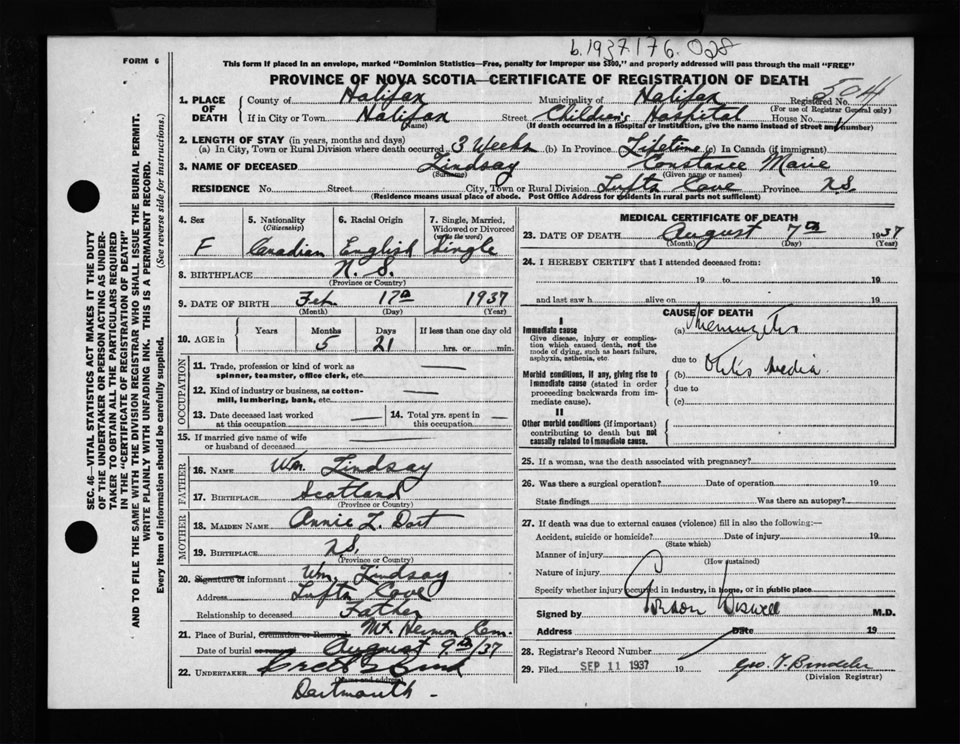 b.1937.176.028
FORM 6
This form if placed in an envelope, marked "Dominion Statistics—Free, penalty for improper use $300," and properly addressed will pass through the mail "FREE"
PROVINCE OF NOVA SCOTIA—CERTIFICATE OF REGISTRATION OF DEATH
504
1. PLACE OF DEATH
County of Halifax Municipality of Halifax Registered No.
(For use of Registrar General only)
If in City or Town Halifax Street Children's Hospital House No.
(Name) (If death occurred in a hospital or institution, give the name instead of street and number)
2. LENGTH OF STAY (in years, months and days)
(a) In City, Town or Rural Division where death occurred 3 Weeks (b) In Province Lifetime (c) In Canada (if immigrant)
3. NAME OF DECEASED Lindsay Constance Marie
(Surname) (Given name or names)
RESIDENCE No. Street City, Town or Rural Division Tufts Cove Province N.S.
(Residence means usual place of abode. Post Office Address for residents in rural parts not sufficient)
SEC. 46—VITAL STATISTICS ACT MAKES IT THE DUTY
OF THE UNDERTAKER OR PERSON ACTING AS UNDER-
TAKER TO OBTAIN ALL THE PARTICULARS REQUIRED
IN THE "CERTIFICATE OF REGISTRATION OF DEATH"
AND TO FILE THE SAME WITH THE DIVISION REGISTRAR WHO SHALL ISSUE THE BURIAL PERMIT.
WRITE PLAINLY WITH UNFADING INK. THIS IS A PERMANENT RECORD.
Every item of information should be carefully supplied. (See reverse side for instructions.)
4. Sex F
5. Nationality (Citizenship) Canadian
6. Racial Origin English
7. Single, Married, Widowed or Divorced (write the word) Single
8. BIRTHPLACE N. S.
(Province or Country)
9. DATE OF BIRTH Feb 17th 1937
(Month) (Day) (Year)
10. AGE in
Years Months Days If less than one day old
5 21 hrs. or min.
OCCUPATION
11. Trade, profession or kind of work as
spinner, teamster, office clerk, etc. —
12. Kind of industry or business, as cotton-
mill, lumbering, bank, etc. —
13. Date deceased last worked at this occupation —
14. Total yrs. spent in this occupation —
15. If married give name of wife
or husband of deceased —
FATHER
16. NAME Wm. Lindsay
17. BIRTHPLACE Scotland
(Province or Country)
MOTHER
18. MAIDEN NAME Annie L. Dart
19. BIRTHPLACE N.S.
(Province or Country)
20. Signature of informant Wm. Lindsay
Address Tufts Cove
Relationship to deceased Father
21. Place of Burial, Cremation or Removal Mt. Hermon Cem.
Date of burial or removal August 9th/37
22. UNDERTAKER
(Name and address)
Dartmouth –
MEDICAL CERTIFICATE OF DEATH
23. DATE OF DEATH August 7th 1937
(Month) (Day) (Year)
24. I HEREBY CERTIFY that I attended deceased from:
19 to 19
and last saw h alive on 19
CAUSE OF DEATH
I
Immediate cause
Give disease, injury or complica-
tion which caused death, not the
mode of dying, such as heart failure,
asphyxia, asthenia, etc.
(a) Meningitis
due to
Morbid conditions, if any, giving rise to
immediate cause (stated in order
proceeding backwards from im-
mediate cause).
(b) Otitis Media
due to
(c)
II
Other morbid conditions (if important)
contributing to death but not
causally related to immediate cause.
25. If a woman, was the death associated with pregnancy?
26. Was there a surgical operation? Date of operation 19
State findings Was there an autopsy?
27. If death was due to external causes (violence) fill in also the following:—
Accident, suicide or homicide? Date of injury 19
(State which)
Manner of injury
(How sustained)
Nature of injury
Specify whether injury occurred in industry, in home, or in public place
Signed by Wiswell M.D.
Address Date 19
28. Registrar's Record Number
29. Filed SEP 11 1937 19
(Division Registrar)